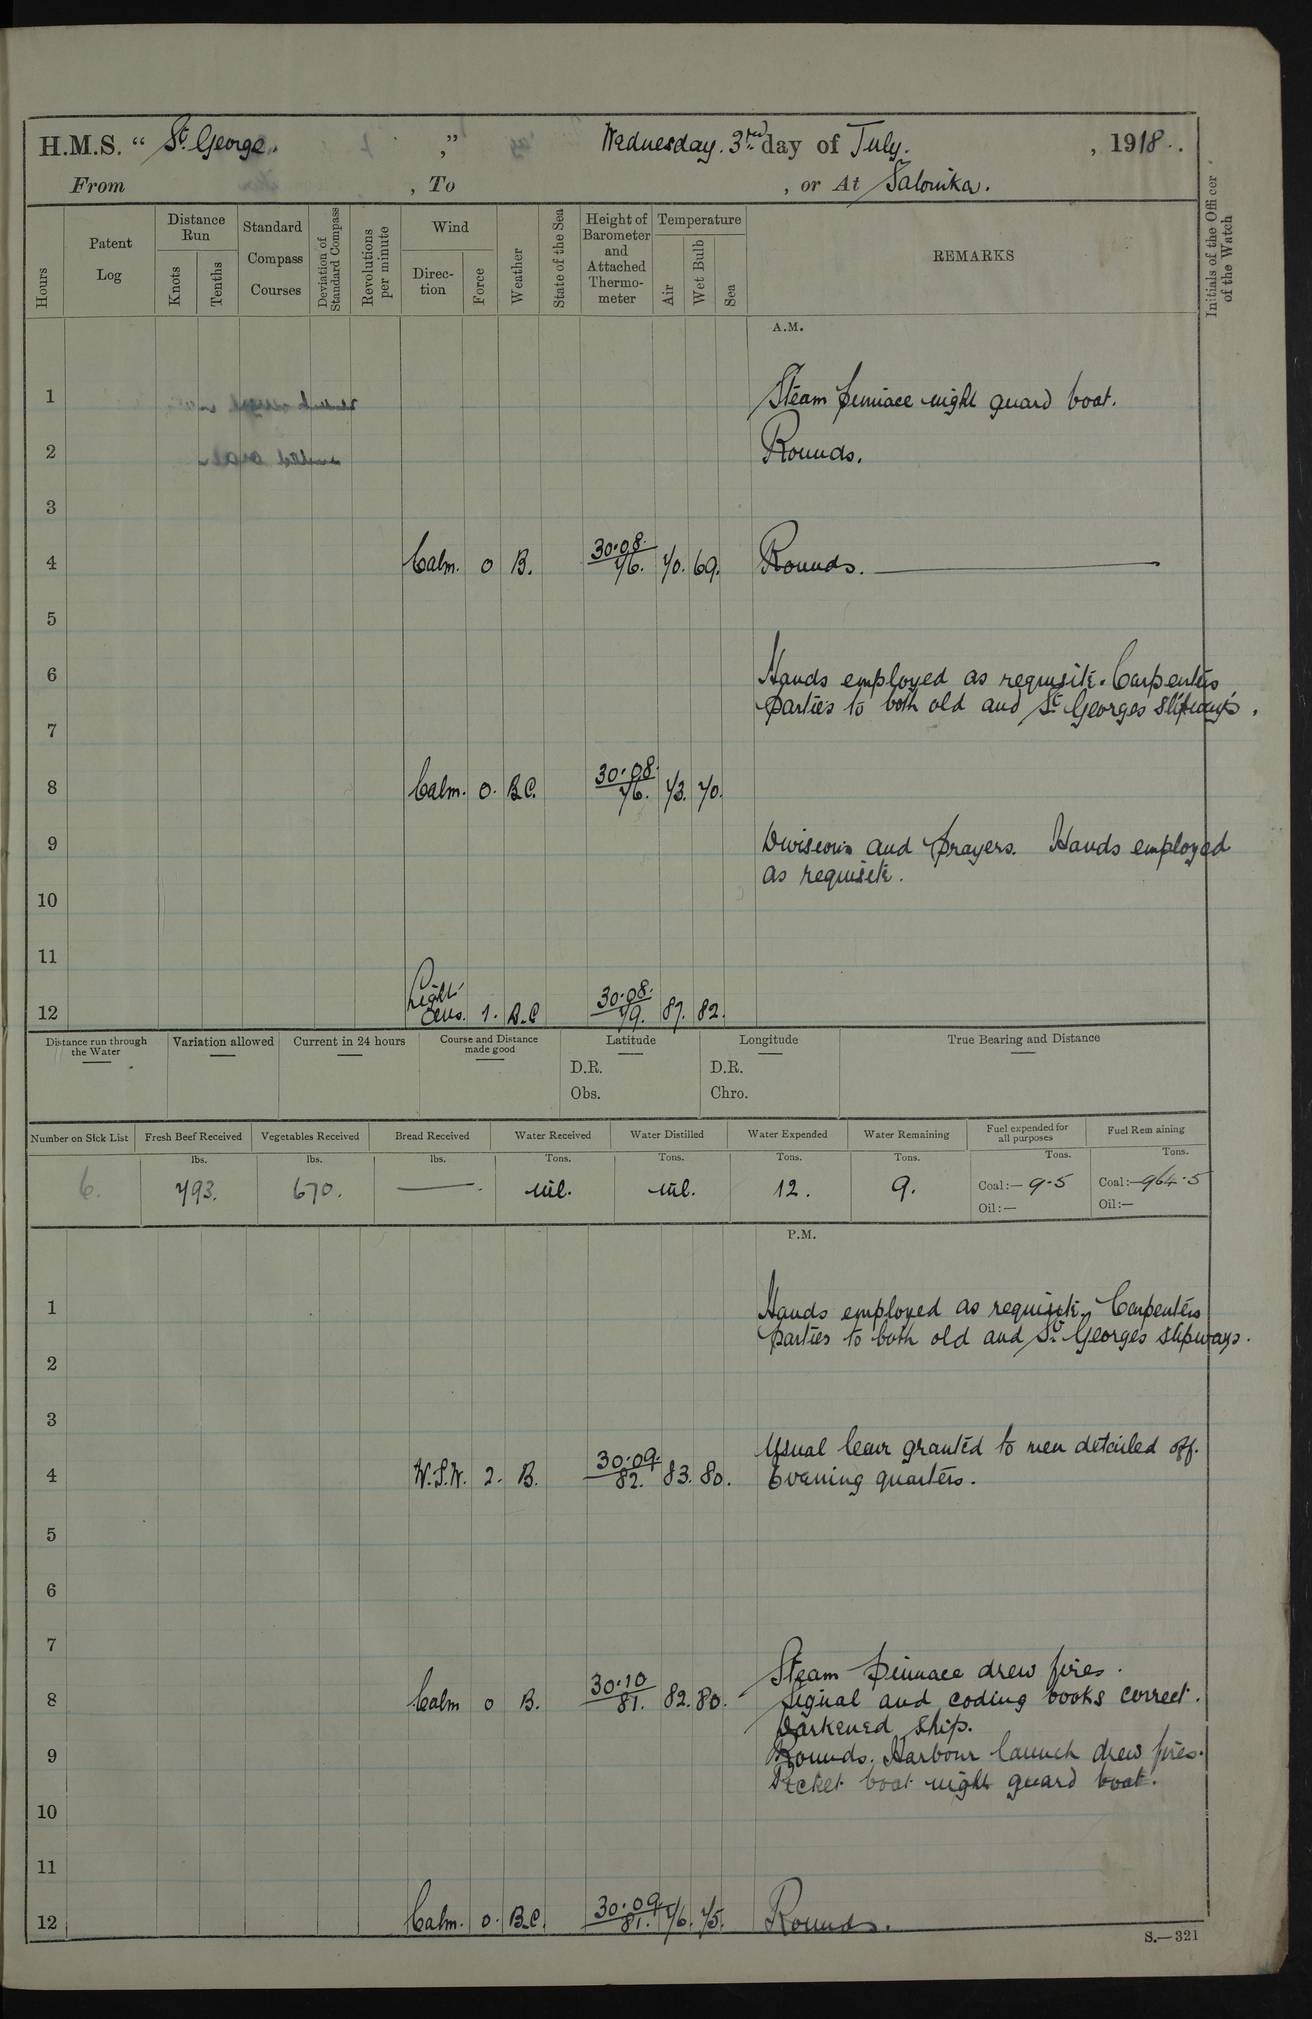 H.M.S. “ St. George. ,” Wednesday. 3rd day of July. , 1918..
From , To , or At Salonika.
Hours
Patent Log
Distance Run
Knots
Tenths
Standard Compass Courses
Deviation of Standard Compass
Revolutions per minute
Wind
Direction
Force
Weather
State of the Sea
Height of Barometer and Attached Thermometer
Temperature
Air
Wet Bulb
Sea
REMARKS
Initials of the Officer of the Watch
A.M.
1 Steam pinnace night guard boat.
2 Rounds.
3
4 Calm. 0 B. 30.08. 76. 70. 69. Rounds.
5
6 Hands employed as requisite. Carpenters
parties to both old and St. Georges slipways.
7
8 Calm. 0. B.C. 30.08. 76. 73. 70.
9 Divisions and prayers. Hands employed
as requisite.
10
11
12 Light airs. 1. B.C 30.08. 79. 87. 82.
Distance run through the Water
Variation allowed
Current in 24 hours
Course and Distance made good
Latitude
D.R.
Obs.
Longitude
D.R.
Chro.
True Bearing and Distance
Number on Sick List
Fresh Beef Received
Vegetables Received
Bread Received
Water Received
Water Distilled
Water Expended
Water Remaining
Fuel expended for all purposes
Fuel Remaining
lbs. lbs. lbs. Tons. Tons. Tons. Tons. Tons. Tons.
6. 793. 670. — nil. nil. 12. 9. Coal:— 9.5 Coal:— 964.5
Oil:— Oil:—
P.M.
1 Hands employed as requisite. Carpenters
parties to both old and St. Georges slipways.
2
3
Usual leave granted to men detailed off.
4 W.S.W. 2. B. 30.09. 82. 83. 80. Evening quarters.
5
6
7
Steam pinnace drew fires.
8 Calm 0 B. 30.10 81. 82. 80. Signal and coding books correct.
Darkened ship.
9 Rounds. Harbour launch drew fires.
Picket boat night guard boat.
10
11
12 Calm. 0. B.C. 30.09. 81. 76. 75. Rounds.
S.—321